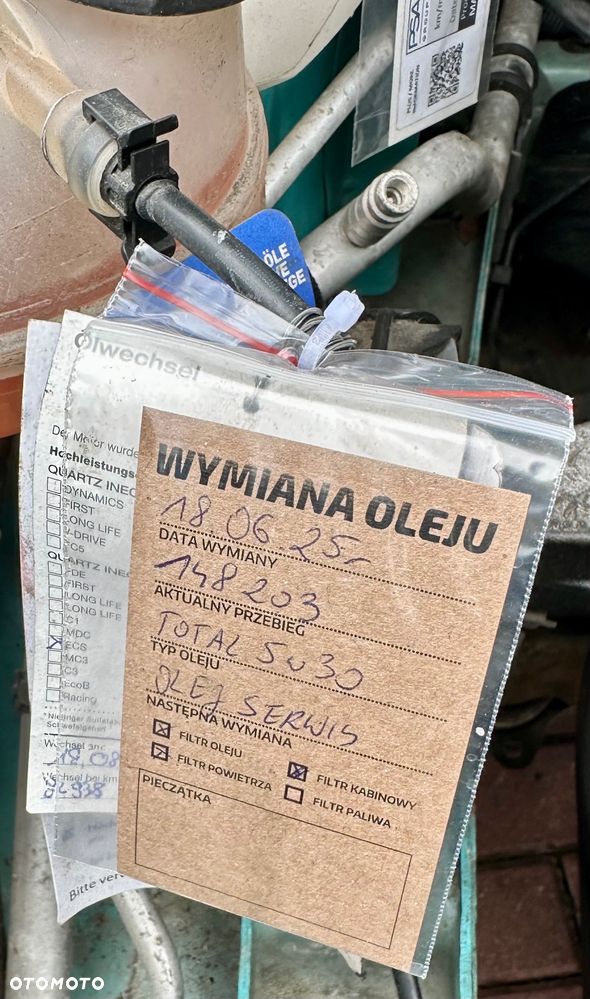 PSA
GROUP
km/m
PLUS / MORE
INFORMATION
ÖLE
Ölwechsel
Der Motor wurde
Hochleistungs
QUARTZ INEO
DYNAMICS
FIRST
LONG LIFE
C5
QUARTZ INEO
FDE
FIRST
LONG LIFE
LONG LIFE
C1
MDC
ECS
MC3
C3
EcoB
Racing
Wechsel am:
Wechsel bei km
Bitte ver
WYMIANA OLEJU
18 06 25r
DATA WYMIANY
148 203
AKTUALNY PRZEBIEG
TOTAL 5W30
TYP OLEJU
OLEJ SERWIS
NASTĘPNA WYMIANA
FILTR OLEJU
FILTR KABINOWY
FILTR POWIETRZA
FILTR PALIWA
PIECZĄTKA
OTOMOTO